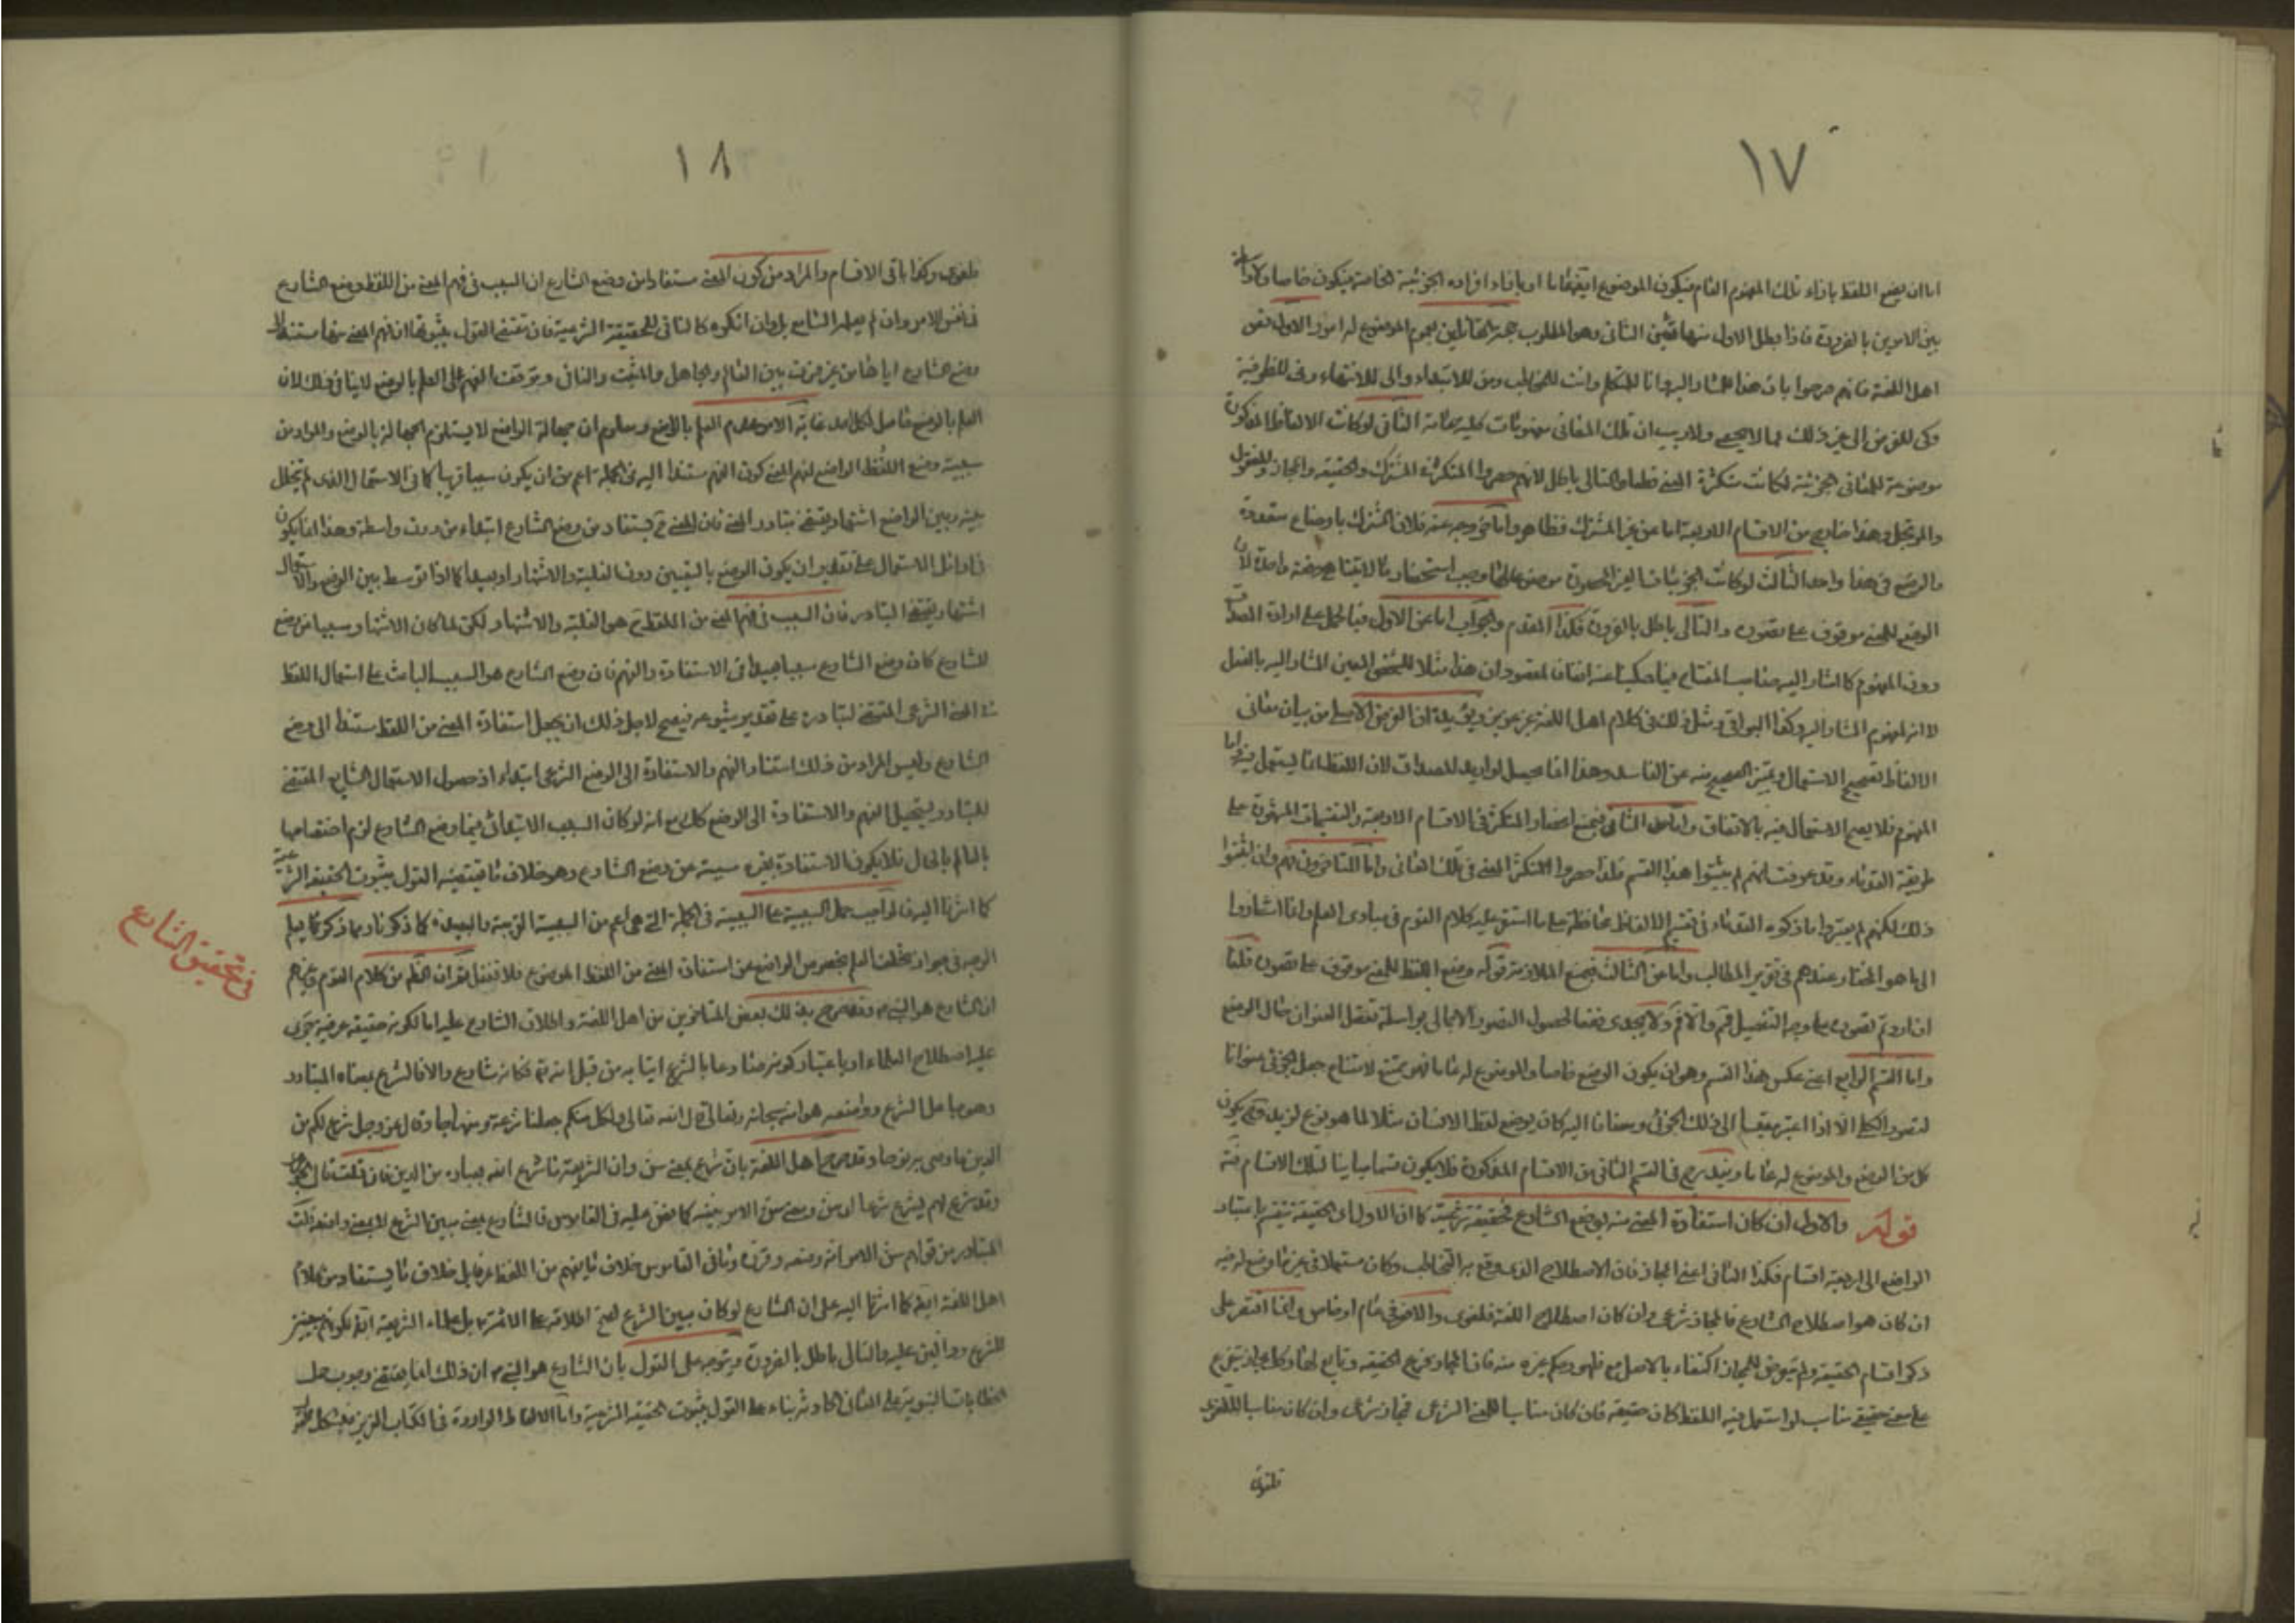 ١٧
اما ان يضع اللفظ بازاء ذلك المفهوم العام فيكون الموضوع له ايضا عاما او بازاء افراده الجزئية الخاصة فيكون خاصا ولا واسطة
بين الامرين بالضرورة فاذا بطل الاول منها تعين الثانى وهو المطلوب حجة القائلين بعموم الموضوع له امور الاول نص
اهل اللغة فانهم صرحوا بان هذا للمشار اليه وانا للمتكلم وانت للمخاطب ومن للابتداء والى للانتهاء وفى للظرفية
وكى للغرض الى غير ذلك مما لا يحصى ولا ريب ان تلك المعانى مفهومات كلية عامة الثانى لو كانت الالفاظ المذكورة
موضوعة للمعانى الجزئية لكانت متكثرة المعنى قطعا والتالى باطل لانهم حصروا المتكثرة فى المشترك والحقيقة والمجاز والمنقول
والمرتجل وهذا خارج من الاقسام الاربعة اما عن غير المشترك فظاهر واما خروجه عنه فلان المشترك باوضاع متعددة
والوضع فى هذا واحد الثالث لو كانت الجزئيات الغير المحصورة موضوعا لها وجب استحضار ما لا يتناهى دفعة واحدة لان
الوضع للمعنى موقوف على تصوره والتالى باطل بالضرورة فكذا المقدم والجواب اما عن الاول فبالحمل على ارادة المصداق
دون المفهوم كما اشار اليه صاحب المفتاح فيما حكينا عنه انفا فمقصودهم ان هذا مثلا للشخص المعين المشار اليه بالفعل
لا انه لمفهوم المشار اليه وكذا البواقى ومثل ذلك فى كلام اهل اللغة غير عزيز ويؤيده ان الغرض الاصلى من بيان معانى
الالفاظ تصحيح الاستعمال وتميز الصحيح منه عن الفاسد وهذا انما يحصل لو اريد المصداق لان اللفظ انما يستعمل فيه واما
المفهوم فلا يصح الاستعمال فيه بالاتفاق واما عن الثانى فبمنع انحصار المتكثر فى الاقسام الاربعة والتقسيمات المشهورة على
طريقة القدماء وقد عرفت انهم لم يثبتوا هذا القسم فلذا حصروا المتكثر المعنى فى تلك المعانى واما المتاخرون فهم وان اثبتوا
ذلك لكنهم لم يغيروا ما ذكره القدماء فى تقسيم الالفاظ محافظة على ما استقر عليه كلام القوم فى مبادى العلم وانما اشاروا
الى ما هو المختار عندهم فى تقرير المطالب واما عن الثالث فبمنع الملازمة قوله وضع اللفظ للمعنى موقوف على تصوره قلنا
ان اردتم تصوره على وجه التفصيل فمم والا فم ولا يجدى نفعا لحصول التصور الاجمالى بواسطة تعقل العنوان حال الوضع
واما القسم الرابع اعنى عكس هذا القسم وهو ان يكون الوضع خاصا والموضوع له عاما فهو ممتنع لامتناع جعل الجزئى عنوانا
لتصور الكلى الا اذا اعتبر مقيسا الى ذلك الجزئى ومضافا اليه كان يوضع لفظ الانسان مثلا لما هو نوع لزيد وح يكون
كل من الوضع والموضوع له عاما ويندرج فى القسم الثانى من الاقسام المذكورة فلا يكون قسما مباينا لتلك الاقسام فتد
قوله والاول ان كان استفادة المعنى منه بوضع الشارع فحقيقة شرعية كما ان الاول اعنى الحقيقة تنقسم باعتبار
الواضع الى اربعة اقسام فكذا الثانى اعنى المجاز فان الاصطلاح الذى وقع به التخاطب وكان مستعملا فى غير ما وضع له فيه
ان كان هو اصطلاح الشارع فالمجاز شرعى وان كان اصطلاح اللغة فلغوى والا فعرفى عام او خاص وانما اقتصر على
ذكر اقسام الحقيقة ولم يتعرض للمجاز اكتفاء بالاصل مع ظهور حكم غيره منه فان المجاز فرع الحقيقة وتابع لها وكل مجاز يتفرع
على معنى حقيقى مناسب لو استعمل فيه اللفظ كان حقيقة فان كان مناسبا للمعنى الشرعى فمجاز شرعى وان كان مناسبا للغوى
فلغوى
١٨
فلغوى وكذا باقى الاقسام والمراد من كون المعنى مستفادا من وضع الشارع ان السبب فى فهم المعنى من اللفظ وضع الشارع
فى نفس الامر وان لم يعلم السامع بل وان انكره كالنافى للحقيقة الشرعية فان مقتضى القول بثبوتها ان فهم المعنى منها مستند الى
وضع الشارع اياها من غير فرق بين العالم والجاهل والمثبت والنافى وتوقف الفهم على العلم بالوضع لا ينافى ذلك لان
العلم بالوضع حاصل لكل احد غاية الامر عدم العلم بالواضع ومعلوم ان جهالة الواضع لا يستلزم الجهالة بالوضع والمراد من
سببية وضع اللفظ الواضع لفهم المعنى كون الفهم مستندا اليه فى الجملة اعم من ان يكون سببا قريبا كما فى الاستعمال الذى لم يتخلل
بينه وبين الواضع اشتهار يقتضى تبادر المعنى فان المعنى ح يستفاد من وضع الشارع ابتداء من دون واسطة وهذا انما يكون
فى اوائل الاستعمال على تقدير ان يكون الوضع بالتعيين دون الغلبة والاشتهار او بعيدا كما اذا توسط بين الوضع والاستعمال
اشتهار يقتضى التبادر فان السبب فى فهم المعنى من اللفظ ح هو الغلبة والاشتهار لكن لما كان الاشتهار مسببا عن وضع
الشارع كان وضع الشارع سببا بعيدا فى الاستفادة والفهم فان وضع الشارع هو السبب الباعث على استعمال اللفظ
فى المعنى الشرعى المقتضى لتبادره على تقدير شيوعه فيصح لاجل ذلك ان يجعل استفادة المعنى من اللفظ مستندا الى وضع
الشارع وليس المراد من ذلك استناد الفهم والاستفادة الى الوضع الشرعى ابتداء اذ حصول الاستعمال الشايع المقتضى
للتبادر يستحيل الفهم والاستفادة الى الوضع كك مع انه لو كان السبب الابتدائى فيها وضع الشارع لزم اختصاصها
بالعالم بالحال فلا يكون الاستفادة لغيره مسببة عن وضع الشارع وهو خلاف ما يقتضيه القول بثبوت الحقيقة الشرعية
كما اشرنا اليه فالواجب حمل السببية على السببية فى الجملة التى هى اعم من السببية القريبة والبعيدة كما ذكرنا وبما ذكرنا يعلم
الوجه فى جواز تخلف العلم بخصوص الواضع عن استفادة المعنى من اللفظ الموضوع فلا تغفل ثم ان الظ من كلام القوم وغيرهم
ان الشارع هو النبى ص وقد صرح بذلك بعض المتاخرين من اهل اللغة واطلاق الشارع عليه اما لكونه حقيقة عرفية جرى
عليه اصطلاح العلماء او باعتبار كونه صادعا بالشرع اتيا به من قبل الله تع فكانه شارع والا فالشرع بمعناه المتبادر
وهو جاعل الشرع وواضعه هو الله سبحانه وتعالى قال الله تعالى ولكل منكم جعلنا شرعة ومنهاجا وقال عز وجل شرع لكم من
الدين ما وصى به نوحا وقد صرح اهل اللغة بان شرع بمعنى سن وان الشريعة ما شرع الله لعباده من الدين فان قلت قال الجوهرى
وقد شرع لهم يشرع شرعا اى سن ومعنى سن الامر بينه كما نص عليه فى القاموس فالشارع بمعنى مبين الشرع لا بمعنى واضعه قلت
المتبادر من قولهم سن الامر انه وضعه وقرره وما فى القاموس خلاف ما يفهم من اللفظ عرفا بل خلاف ما يستفاد من كلام
اهل اللغة ايضا كما اشرنا اليه على ان الشارع لو كان مبين الشرع لصح اطلاقه على الائمة ع بل علماء الشريعة ايضا لكونهم مبينين
للشرع ودالين عليه والتالى باطل بالضرورة ويتوجه على القول بان الشارع هو النبى ص ان ذلك انما يقتضى وجوب حمل
الخطابات النبوية على المعانى الحادثة بناء على القول بثبوت الحقيقة الشرعية واما الالفاظ الواردة فى الكتاب العزيز فيشكل
فى تحقيق الشارع